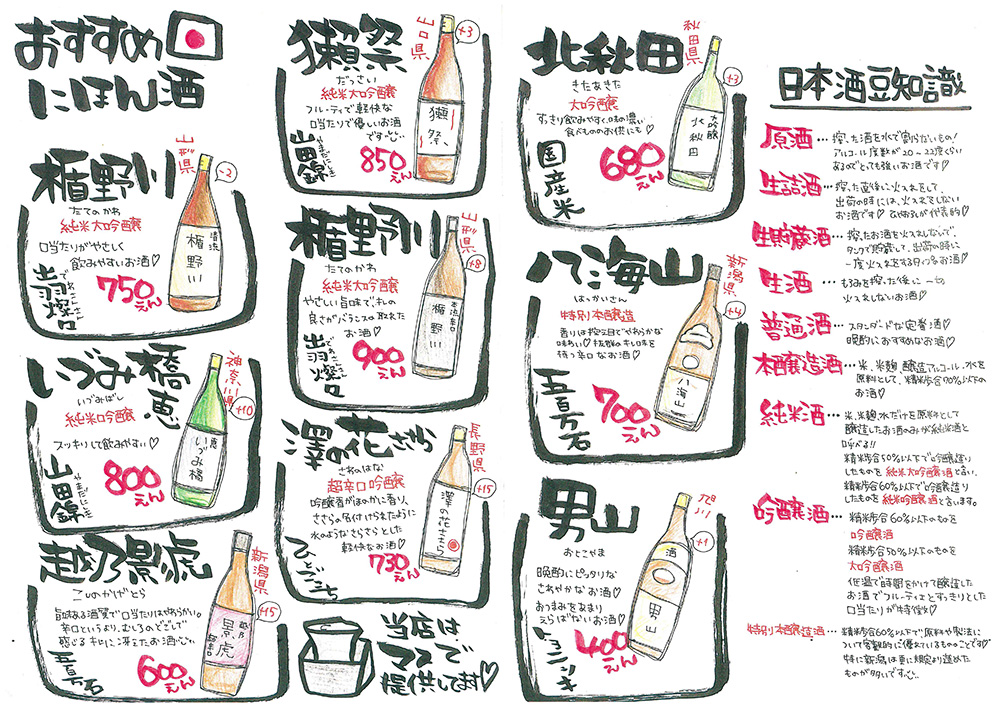 おすすめ
にほん酒
楯野川
山形県
-2
たてのかわ
純米大吟醸
口当たりがやさしく
飲みやすいお酒♡
出羽燦々
でわさんさん
750えん
清流
楯野川
いづみ橋
恵
神奈川県
+10
いづみばし
純米吟醸
スッキリして飲みやすい♡
山田錦
やまだにしき
800えん
恵
いづみ橋
越乃景虎
新潟県
+5
こしのかげとら
旨味ある酒質で口当たりはやわらかい。
辛口というより、むしろのどごしで
感じるキレに冴えたお酒です。
五百万石
600えん
越乃
景虎
獺祭
山口県
+3
だっさい
純米大吟醸
フルーティで軽快な
口当たりで優しいお酒
です
山田錦
やまだにしき
850えん
獺祭
楯野川
山形県
+8
たてのかわ
純米大吟醸
やさしい旨味でキレの
良さがバランスの取れた
お酒♡
出羽燦々
でわさんさん
900えん
本流辛口
楯野川
澤の花 ささら
長野県
+15
さわのはな
超辛口吟醸
吟醸香がほのかに香り、
ささらの名付けられたように
水のようなさらさらとした
軽快なお酒♡
ひとごこち
730えん
澤の花ささら
当店は
マスで
提供してます♡
北秋田
秋田県
+3
きたあきた
大吟醸
すっきり飲みやすく、味の濃い
食べもののお供にも♡
国産米
680えん
大吟醸
北秋田
八海山
新潟県
+4
はっかいさん
特別本醸造
香りは控え目でやわらかな
味わい♡ 抜群のキレ味を
持つ辛口なお酒♡
五百万石
700えん
八海山
男山
+1
おとこやま
晩酌にピッタリな
さわやかなお酒♡
おつまみをあまり
えらばないお酒♡
400えん
酒
男山
日本酒豆知識
原酒…搾った酒を水で割らないもの!
アルコール度数が20〜22度くらい
あるのでとても強いお酒です♡
生詰酒…搾った直後に火入れをして、
出荷の時には、火入れをしない
お酒です♡ ひやおろしが代表的♡
生貯蔵酒…搾ったお酒を火入れしないで、
タンクで貯蔵して、出荷の時に
一度火入れをするタイプのお酒♡
生酒…もろみを搾った後に一切
火入れしないお酒♡
普通酒…スタンダードな定番酒♡
晩酌におすすめなお酒♡
本醸造酒…米、米麹、醸造アルコール、水を
原料として、精米歩合70%以下の
お酒♡
純米酒…米、米麹、水だけを原料として
醸造したお酒のみが純米酒と
呼べる!!
精米歩合50%以下で吟醸造り
したものを純米大吟醸酒と言い、
精米歩合60%以下で吟醸造り
したものを純米吟醸酒と言います。
吟醸酒…精米歩合60%以下のものを
吟醸酒
精米歩合50%以下のものを
大吟醸酒
低温で時間をかけて醸造した
お酒でフルーティでとすっきりとした
口当たりが特徴♡
特別本醸造酒…精米歩合60%以下で原料や製法に
ついて客観的に優れているもののことです♡
特に新潟は更に規定より進めた
ものが多いです